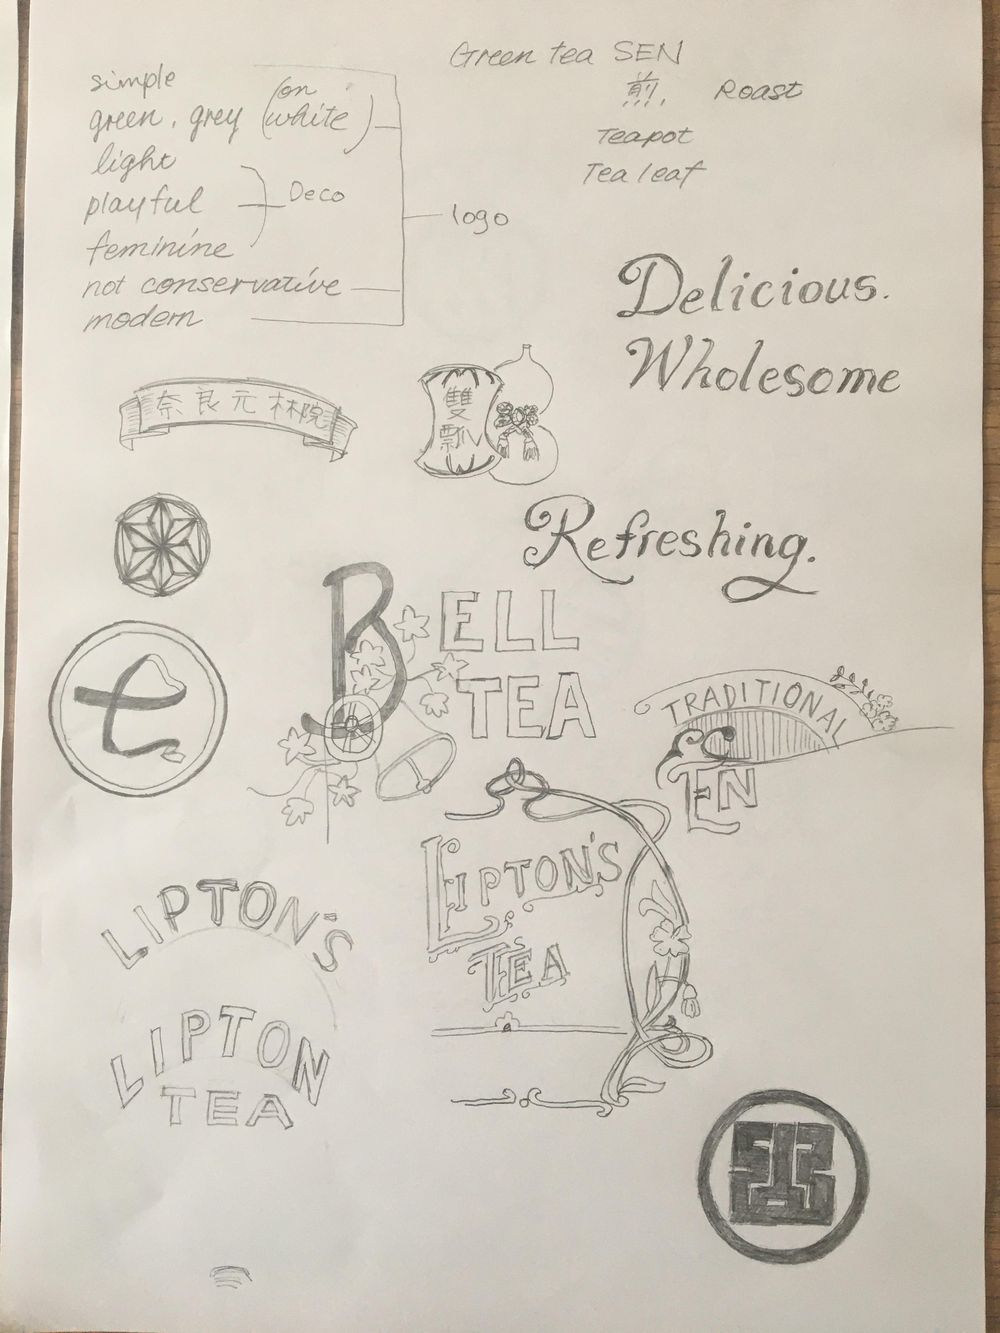 simple
green, grey (on white)
light
playful
feminine
not conservative
modern
Deco
logo
Green tea SEN
煎, Roast
Teapot
Tea leaf
Delicious.
Wholesome
奈良元林院
雙瓢
Refreshing.
BELL
TEA
七
TRADITIONAL
SEN
LIPTON'S
TEA
LIPTON'S
LIPTON
TEA